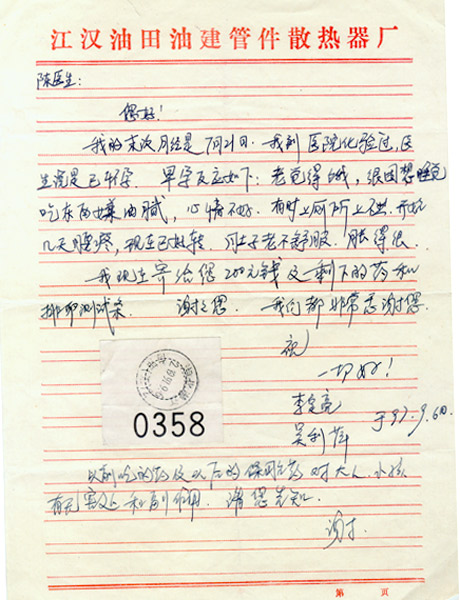 江汉油田油建管件散热器厂
陈医生:
您好!
我的末次月经是7月21日. 我到医院化验过,医
生说是已怀孕. 早孕反应如下: 老觉得饿, 很困想睡觉
吃东西嫌油腻, 心情不好. 有时上厕所上不出. 开始
几天腰疼, 现在已好转. 肚子老不舒服. 胀得很.
我现在寄给您200元钱及一剩下的药和
排卵测试条. 谢谢您. 我们都非常感谢您.
祝
一切好!
李 亮
吴利萍 于97.9.6日.
0358
以前吃的药及以后的保胎药对大人小孩
有无害处和副作用. 请您告知.
谢谢.
第 页